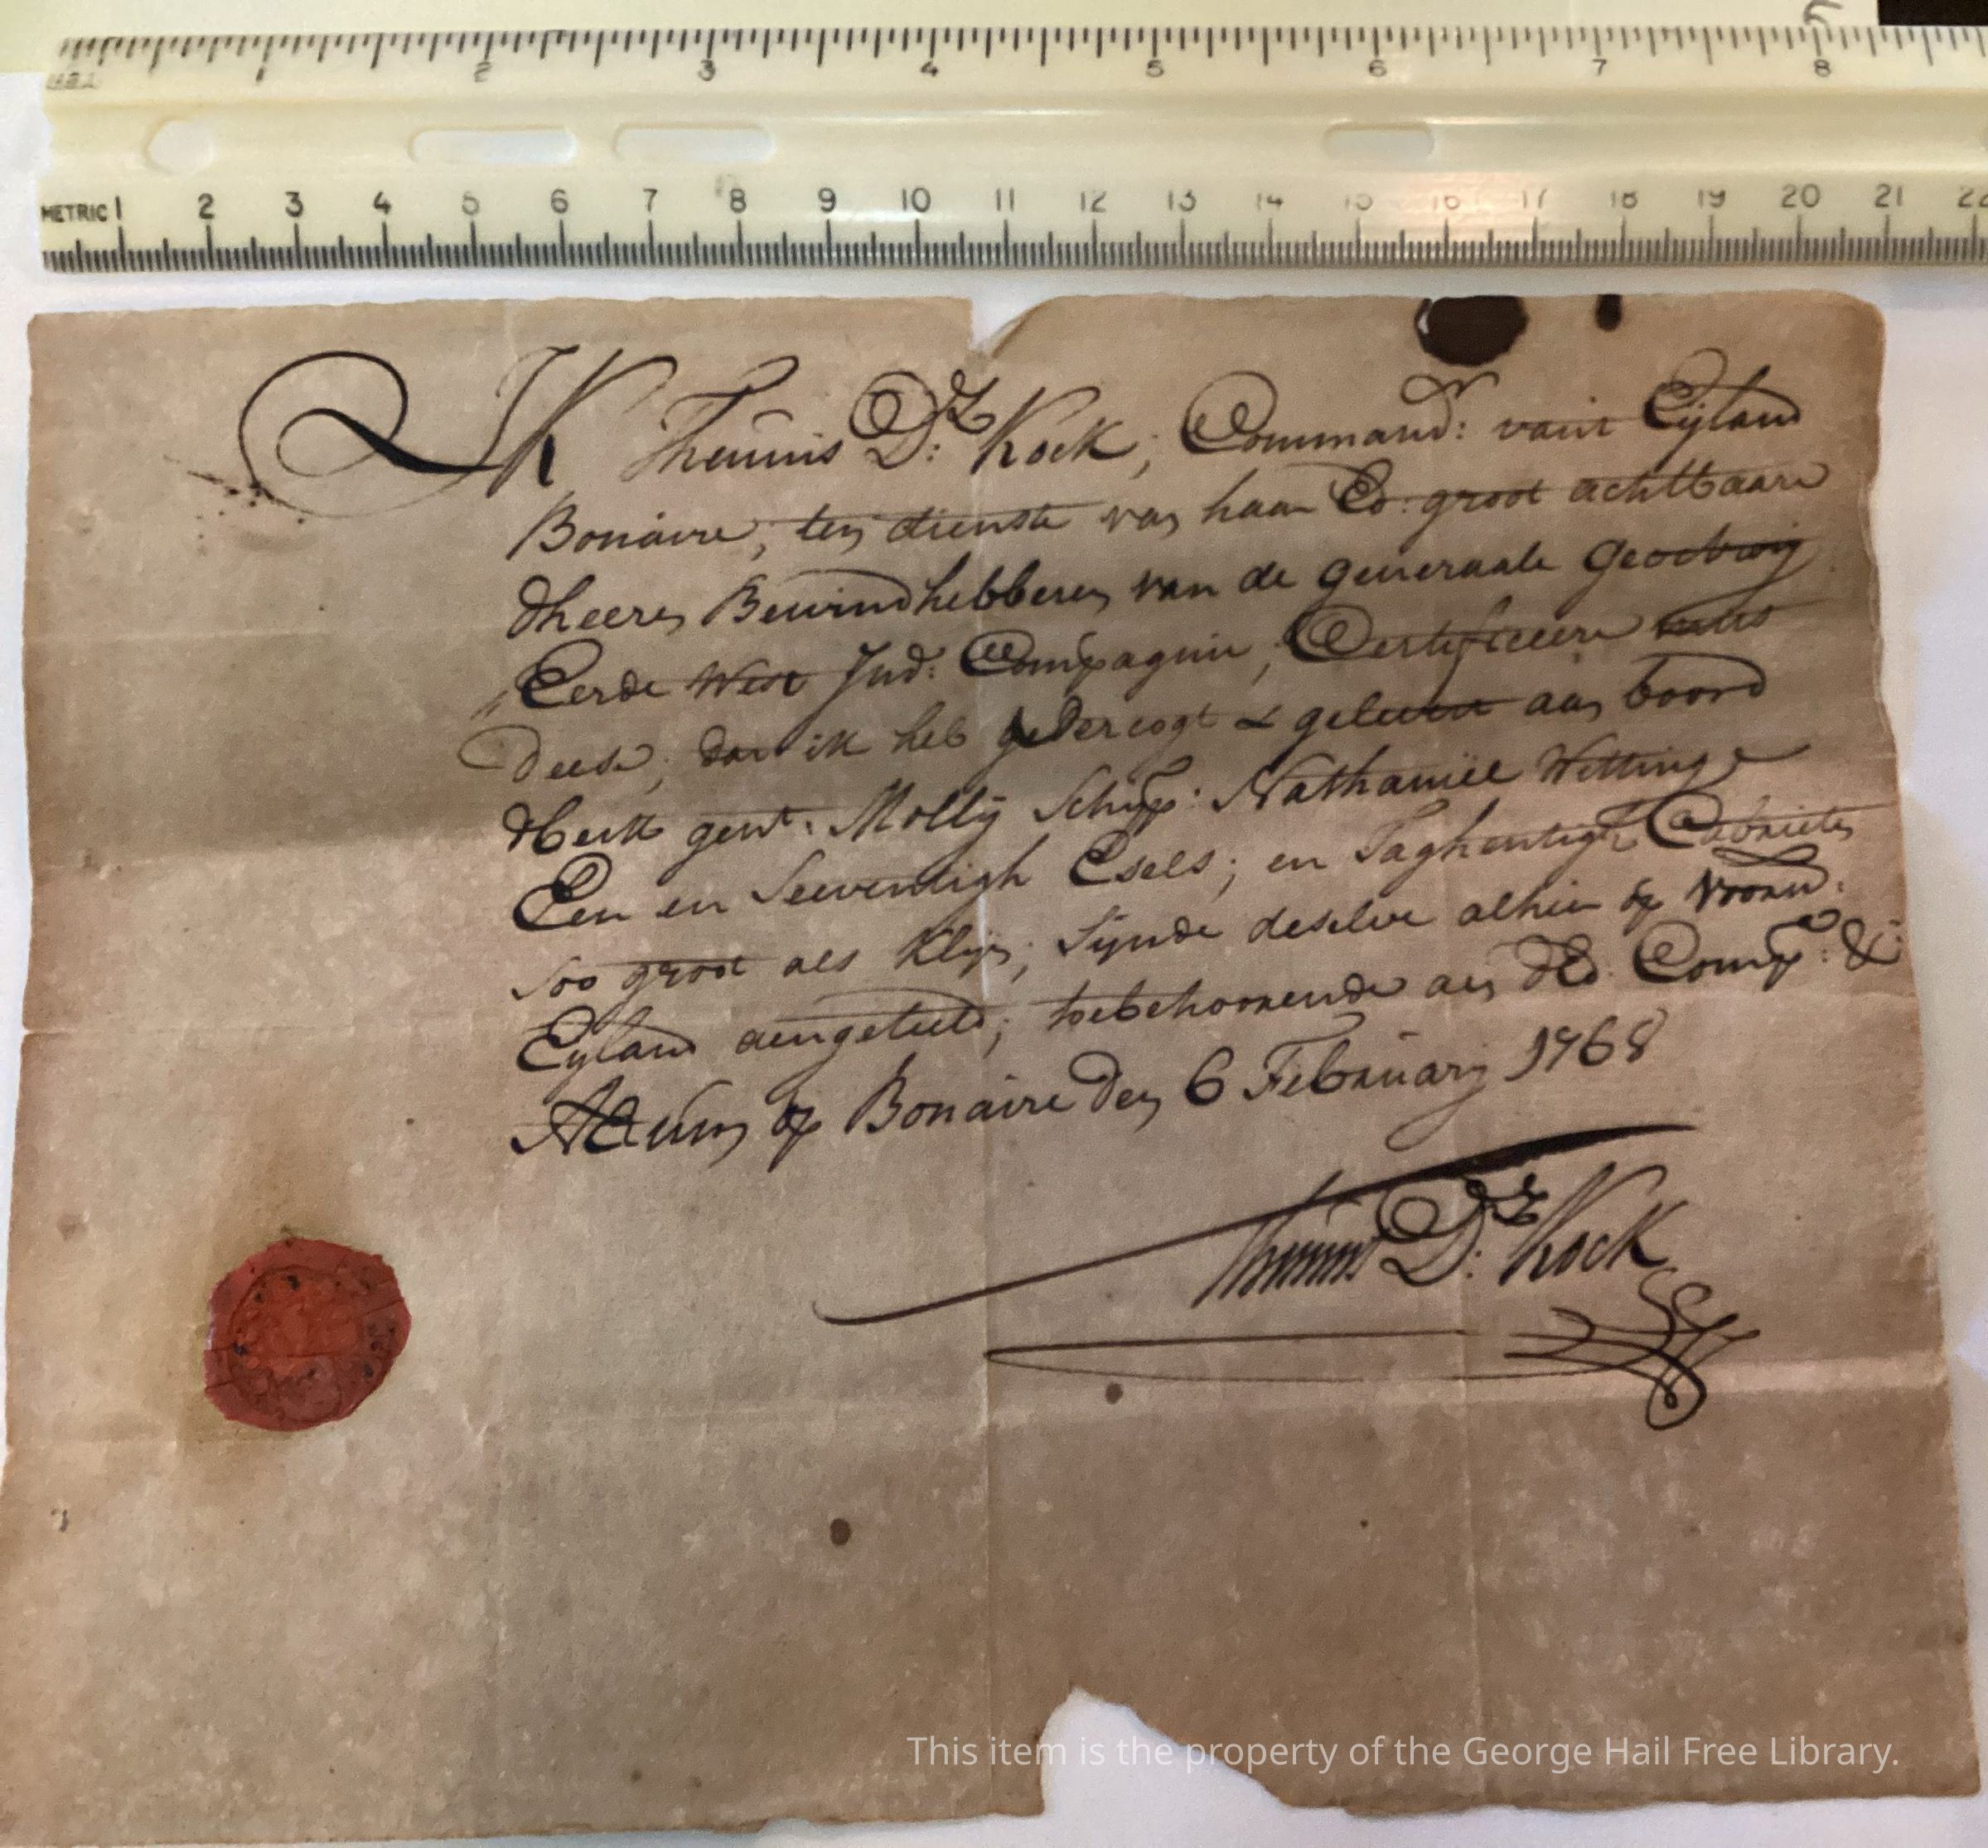 2 3 4 5 6 7 8
METRIC 1 2 3 4 5 6 7 8 9 10 11 12 13 14 15 16 17 18 19 20 21 22
IK Theunis D:rz Kock, Command:r vant Eyland
Bonaire, ten dienste van haar Ed: groot achtbaare
dheeren Bewindhebberen van de generaale Geoctroij
Eerde West Ind: Compagnie, Certificeere mits
Deese, dat ik heb gelevert aan boord
dberk gent: Molly Schipp:r Nathaniel Wittinge
Een en Seeventigh Esels; en Taghentigh Cabrieten
soo groot als klijn, sijnde deselve alhier op voorn:
Eyland aengeteeld, toebehoorende aen dEd: Comp:e &:
Actum op Bonaire den 6 Februarij 1768
Theunis D:rz Kock
This item is the property of the George Hail Free Library.